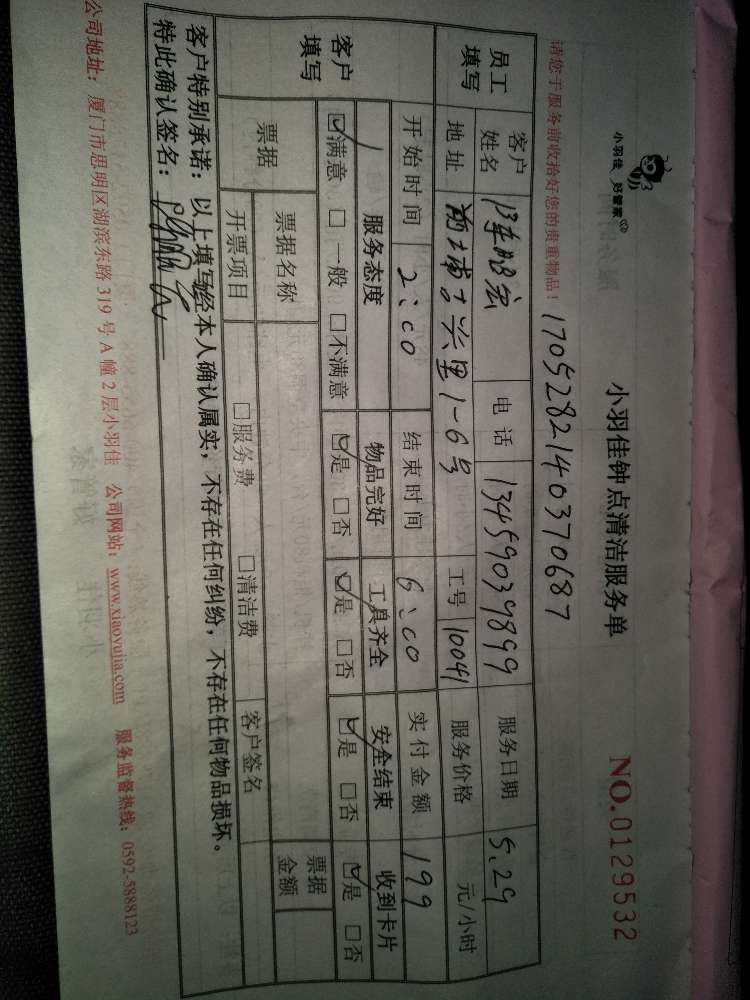 小羽佳 好管家
小羽佳钟点清洁服务单
NO.0129532
请您于服务前收拾好您的贵重物品！
1705282140370687
员工填写
客户姓名
电话 13459039899
服务日期 5.29
地址 1-6号
工号 10041
服务价格 元/小时
客户填写
开始时间 2:00
结束时间 6:00
实付金额 199
服务态度 物品完好 工具齐全 安全结束 收到卡片
☑满意 □一般 □不满意 ☑是 □否 ☑是 □否 ☑是 □否 ☑是 □否
票据
票据名称
票据金额
开票项目 □服务费 □清洁费 客户签名
客户特别承诺：以上填写经本人确认属实，不存在任何纠纷，不存在任何物品损坏。
特此确认签名：
公司地址：厦门市思明区湖滨东路319号A幢2层小羽佳 公司网站：www.xiaoyujia.com 服务监督热线：0592-5888123